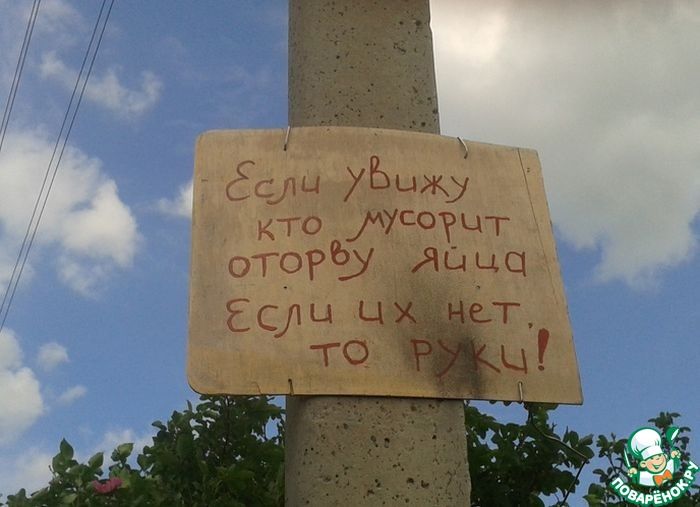 Если увижу
кто мусорит
оторву яйца
Если их нет,
то руки!
ПОВАРЁНОК.РУ